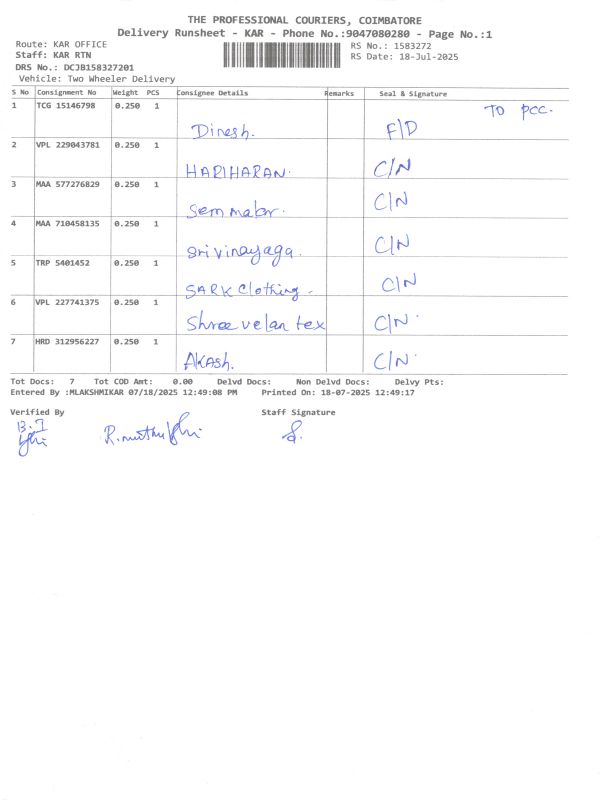 THE PROFESSIONAL COURIERS, COIMBATORE
Delivery Runsheet - KAR - Phone No.:9047080280 - Page No.:1
Route: KAR OFFICE RS No.: 1583272
Staff: KAR RTN RS Date: 18-Jul-2025
DRS No.: DCJB158327201
Vehicle: Two Wheeler Delivery
S No Consignment No Weight PCS Consignee Details Remarks Seal & Signature
1 TCG 15146798 0.250 1 TO PCC.
Dinesh. F/D
2 VPL 229043781 0.250 1
HARIHARAN. C/N
3 MAA 577276829 0.250 1 C/N
4 MAA 710458135 0.250 1
Sri vinayaga. C/N
5 TRP 5401452 0.250 1
SARK Clothing. C/N
6 VPL 227741375 0.250 1
Shree velan tex C/N
7 HRD 312956227 0.250 1
AKASH. C/N
Tot Docs: 7 Tot COD Amt: 0.00 Delvd Docs: Non Delvd Docs: Delvy Pts:
Entered By :MLAKSHMIKAR 07/18/2025 12:49:08 PM Printed On: 18-07-2025 12:49:17
Verified By Staff Signature